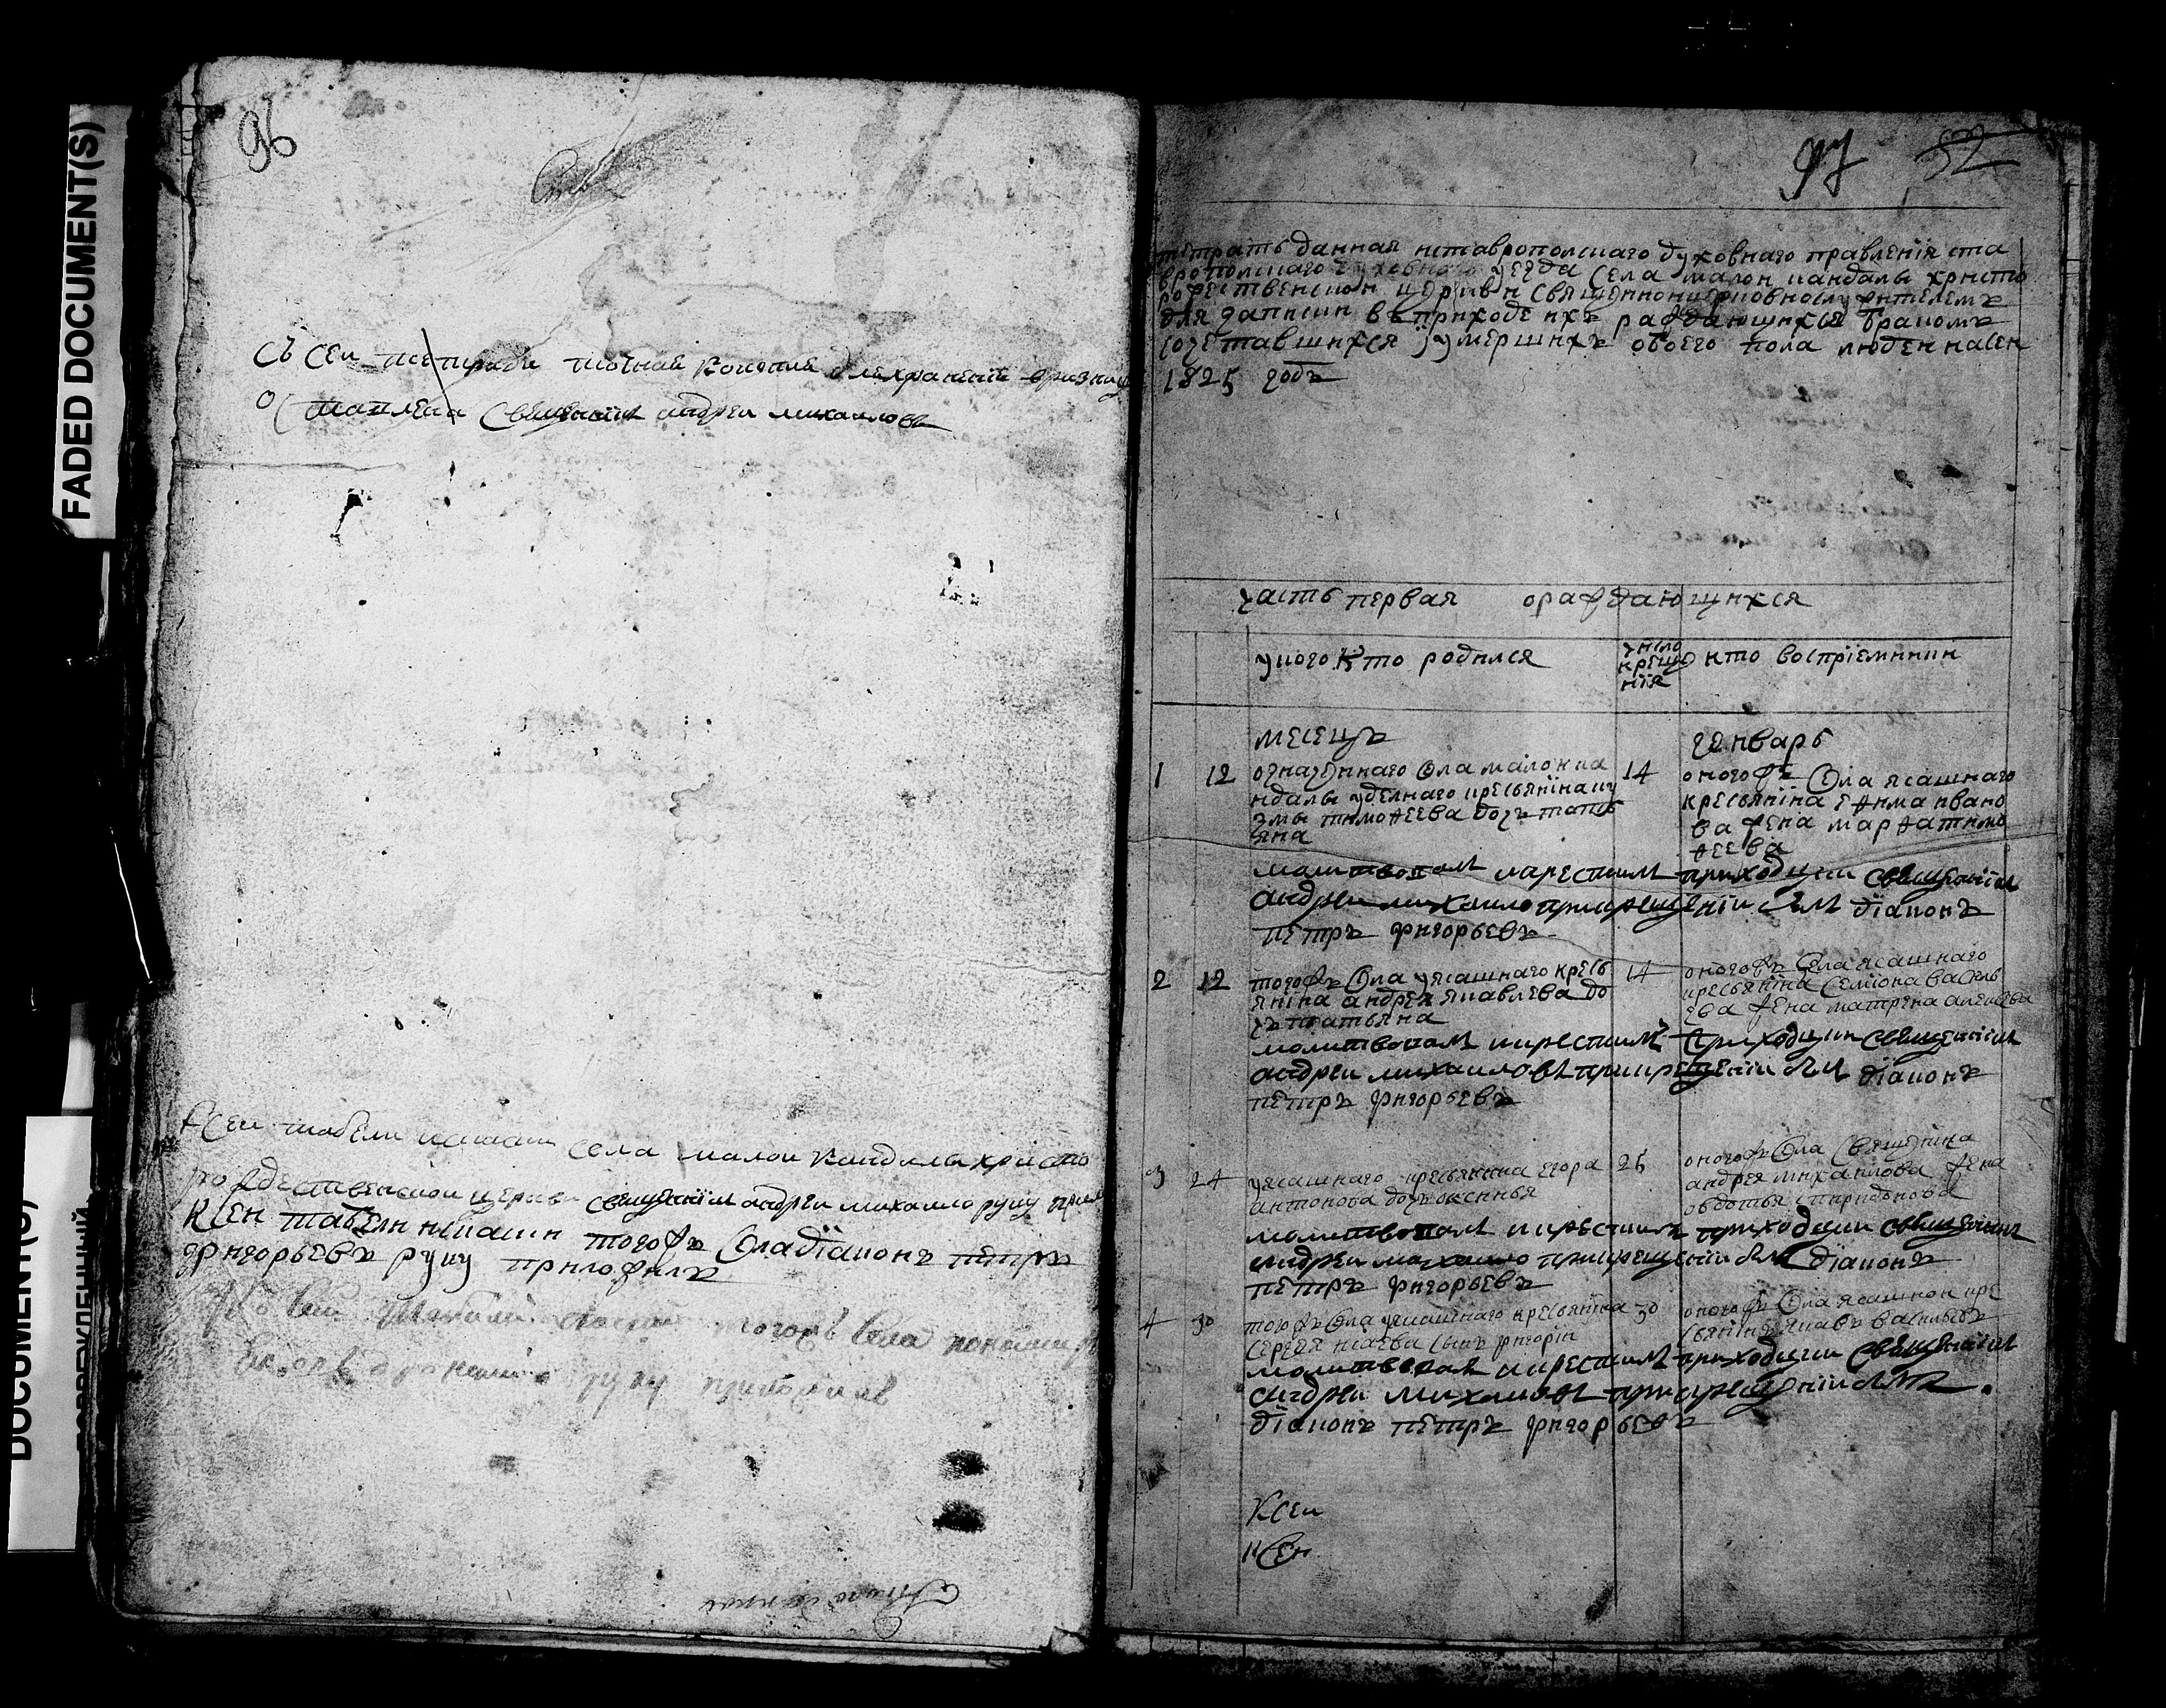 FADED DOCUMENT(S)
DOCUMENT(S)
96
Съ сеи тетради точная копия для хранения в ризнице
оставлена священникъ андреи михаиловъ
К сеи табели села малои кандалы христо
рождественскои церкви священникъ андреи михаило руку
К сеи табели того жъ села дїаконъ петръ
григорьевъ руку приложилъ
тогожъ села
руку приложилъ
97 52
тетрать данная изъ ставропольскаго духовнаго правленїя ста
вропольскаго духовнаго уезда села малои кандалы христо
рожественскои церкви священноицерковнослужителемъ
для записки въ приходе ихъ раждающихся бракомъ
сочетавшихся и умершихъ обоего пола людеи на сеи
1825 годъ
часть первая о раждающихся
у кого кто родился
число
креще
нїя
кто воспрїемники
месецъ генварь
1 12 означеннаго села малои ка
ндалы уделнаго кресьянїна ку
змы тимоѳеева дочь тать
яна
14 оного жъ села ясашнаго
кресьянїна еѳима ивано
ва жена марѳа тимо
ѳеева
молитвовалъ и крестилъ приходцки священнїкъ
андреи михаило при крещенїи былъ дїаконъ
петръ григорьевъ
2 12 того жъ села у ясашнаго кресь
янїна андрея яковлева до
чъ татьяна
14 оного жъ села ясашнаго
кресьянїна семїона василь
ева жена матрена алексеева
молитвовалъ и крестилъ приходцки священнїкъ
андреи михаиловъ при крещенїи былъ дїаконъ
петръ григорьевъ
3 24 у ясашнаго кресьянина егора
антонова дочь оксинья
25 оного жъ села священїка
андрея михаилова жена
овдотья спиридонова
молитвовалъ и крестилъ приходцки священникъ
андреи михаило при крещенїи былъ дїаконъ
петръ григорьевъ
4 30 того жъ села у ясашнаго кресьянїна
сергея исаева сынъ григорїи
30 оного жъ села ясашнои кре
сьянїнъ яковъ васильевъ
молитвовалъ и крестилъ приходцки священнїкъ
андреи михаиловъ при крещенїи былъ
дїаконъ петръ григорьевъ
К сеи
К сеи